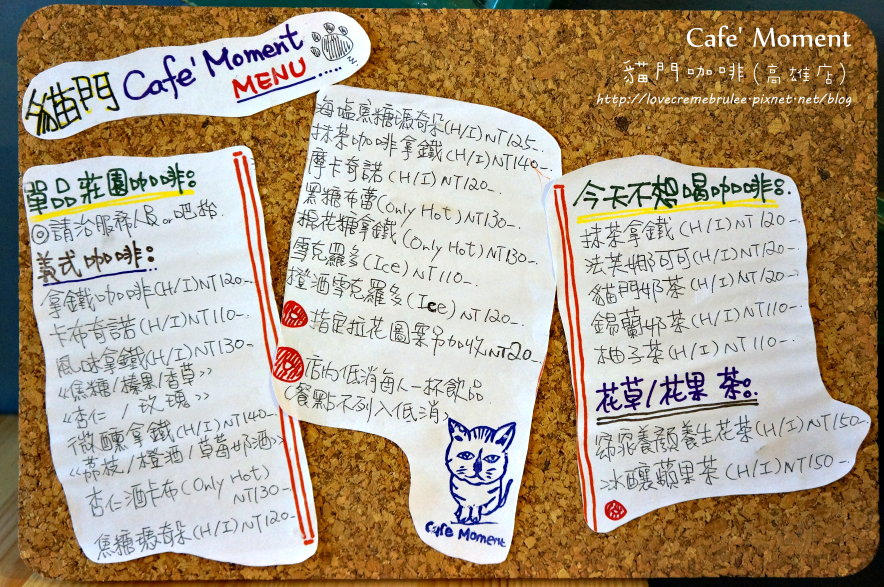 貓門 Cafe' Moment
MENU.....
Cafe' Moment
貓門咖啡(高雄店)
http://lovecremebrulee.pixnet.net/blog
單品莊園咖啡:
◎請洽服務人員or吧抬.
義式咖啡:
拿鐵咖啡(H/I)NT120-.
卡布奇諾(H/I)NT110-.
風味拿鐵(H/I)NT130-
《焦糖/榛果/香草》
《杏仁/玫瑰》
微醺拿鐵(H/I)NT140-.
《荔枝/橙酒/草莓奶酒》
杏仁酒卡布(Only Hot)
NT130-.
焦糖瑪奇朵(H/I)NT120-.
海塩焦糖瑪奇朵(H/I)NT125-.
抹茶咖啡拿鐵(H/I)NT140-.
摩卡奇諾(H/I)NT120-.
黑糖布蕾(Only Hot)NT130-.
棉花糖拿鐵(Only Hot)NT130-.
雪克羅多(Ice)NT110-.
橙酒雪克羅多(Ice)NT120-.
指定拉花圖案另加收NT20-.
店內低消每人一杯飲品
(餐點不列入低消)
Cafe Moment
今天不想喝咖啡:
抹茶拿鐵(H/I)NT120-.
法芙娜可可(H/I)NT120-.
貓門奶茶(H/I)NT120-.
錫蘭奶茶(H/I)NT110-.
柚子茶(H/I)NT110-.
花草/花果 茶:
窈窕養顏養生花茶(H/I)NT150-.
冰釀蘋果茶(H/I)NT150-.